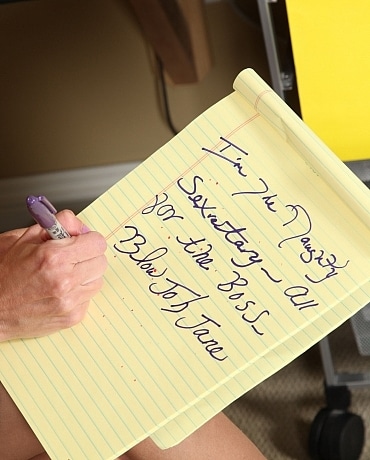 I'm The Naughty
Sexretary~ All
for the Boss~
Blow Job Jane